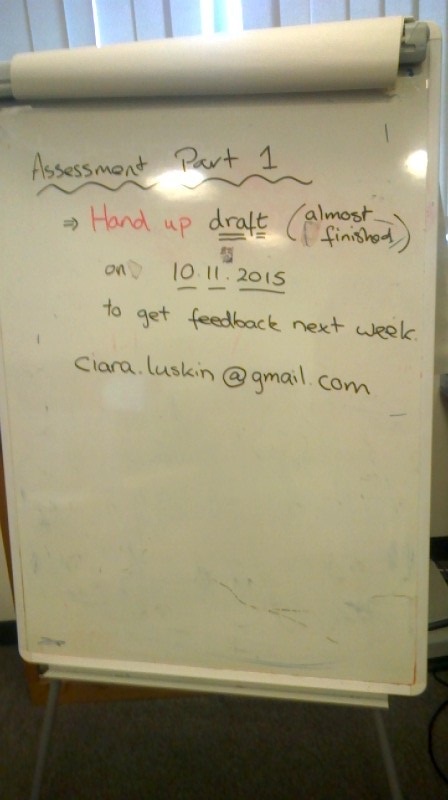 Assessment Part 1
⇒ Hand up draft (almost finished)
on 10.11.2015
to get feedback next week
Ciara.luskin@gmail.com